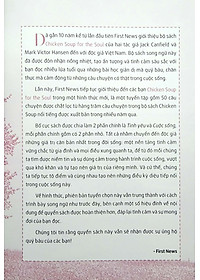 Đã gần 10 năm kể từ lần đầu tiên First News giới thiệu bộ sách
Chicken Soup for the Soul của hai tác giả Jack Canfield và
Mark Victor Hansen đến với độc giả Việt Nam. Bộ sách song ngữ này
đã được đón nhận nồng nhiệt, tạo ấn tượng và tình cảm sâu sắc với
bạn đọc nhiều lứa tuổi qua những bài học giản dị mà quý báu, chân
thực mà cảm động từ những câu chuyện có thật trong cuộc sống.
Lần này, First News tiếp tục giới thiệu đến các bạn Chicken Soup
for the Soul trong một hình thức mới, là một tuyển tập gồm 50 câu
chuyện được chắt lọc từ hàng trăm câu chuyện trong bộ sách Chicken
Soup nổi tiếng được xuất bản trong nhiều năm qua.
Bố cục sách được chia làm 2 phần chính là Tình yêu và Cuộc sống,
mỗi phần chính gồm có 2 phần nhỏ. Tất cả nhằm chuyển đến độc giả
những giá trị căn bản nhất trong đời sống: một nền tảng tình cảm
vững chắc từ gia đình và mọi điều xung quanh ta, để từ đó mỗi chúng
ta tìm được niềm tin và sự can đảm trong hành trình cuộc sống, vượt
qua khó khăn và tự tạo nên giá trị của riêng mình. Và cứ thế, chúng
ta tiếp tục tô điểm và cùng nhau tạo nên những điều kỳ diệu tiếp nối
trong cuộc sống này.
Về hình thức, phiên bản tuyển chọn này vẫn trung thành với cách
trình bày song ngữ như trước đây, bên cạnh một số hiệu đính về nội
dung để quyển sách được hoàn thiện hơn, đáp lại tình cảm và sự mong
đợi của bạn đọc.
Chúng tôi tin rằng quyển sách này vẫn sẽ nhận được sự ủng hộ
quý báu của các bạn!
- First News